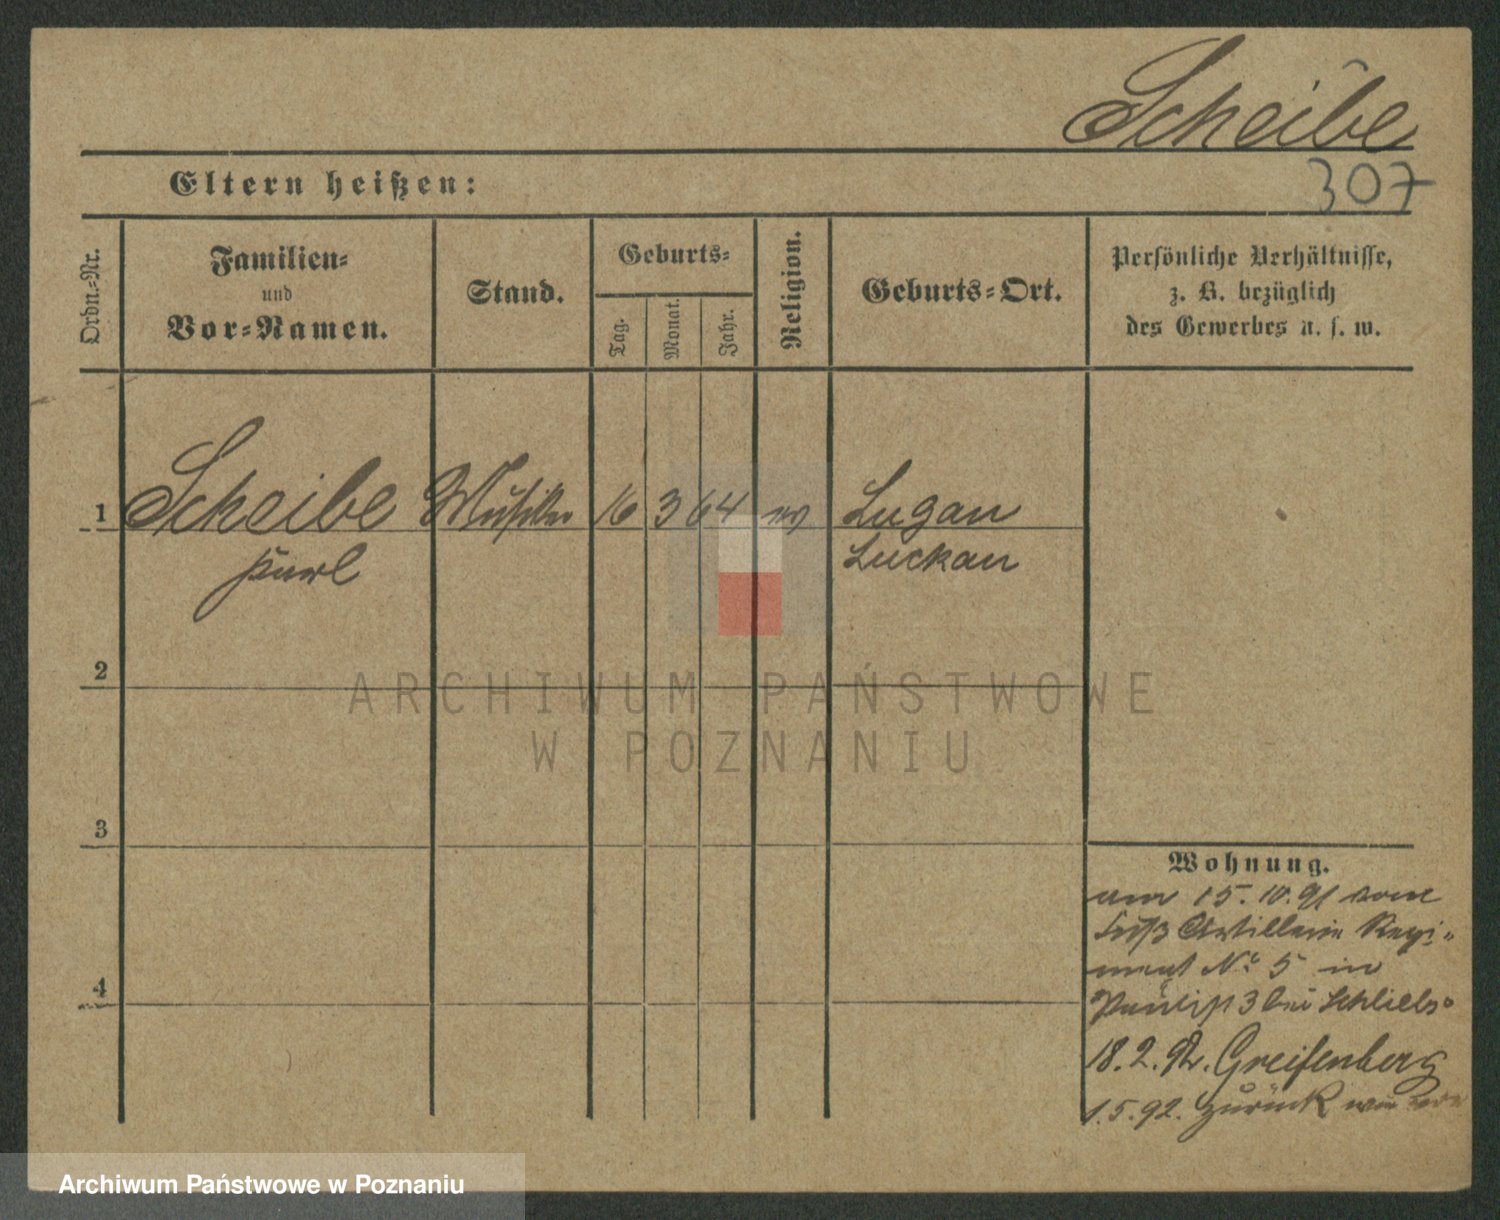 Scheibe
Eltern heißen:
307
Ordn.-Nr.
Familien-
und
Vor-Namen.
Stand.
Geburts-
Tag.
Monat.
Jahr.
Religion.
Geburts-Ort.
Persönliche Verhältnisse,
z. B. bezüglich
des Gewerbes u. s. w.
1 Scheibe Musiker 16 3 64 ev Lugau
Luckau
2
ARCHIWUM PAŃSTWOWE
W POZNANIU
3
4
Wohnung.
15.10.91 vom
Fuß Artillerie Regi-
ment No 5 in
3 bei
18.2.92. Greifenberg
1.5.92. zurück
Archiwum Państwowe w Poznaniu